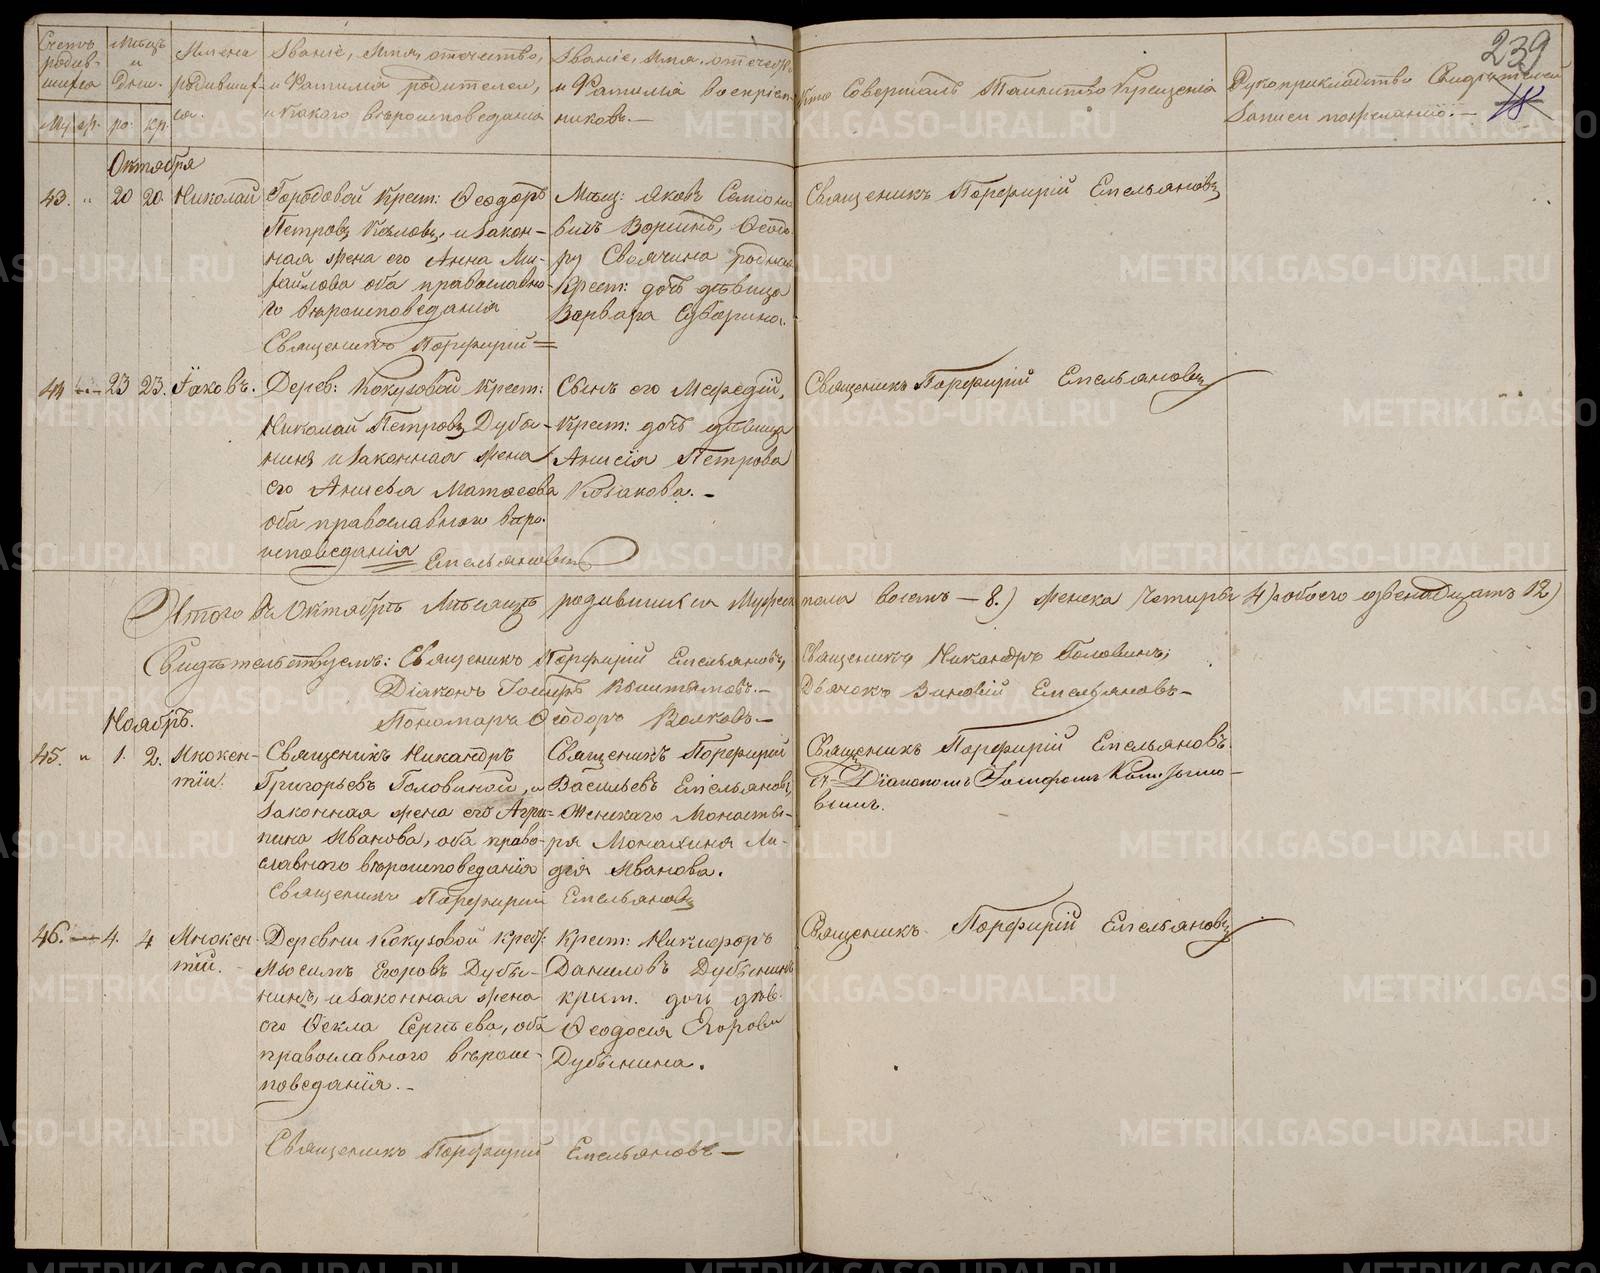 239
18
Счетъ родив-
шихся
Муж. жр.
Мѣсяцъ
и
День.
ро. кр.
Имена
родивших-
ся.
Званіе, Имя, отчество,
и Фамилія родителей,
и Какого вѣроисповеданія
Званіе, Имя, отчество
и Фамилія воспріем-
никовъ.—
Кто Совершалъ Таинство Крещенія
Рукоприкладство Свидѣтелей
Записи по желанію.—
Октября
43. " 20 20 Николай
Крест: Ѳеодоръ
Петровъ Козловъ, и Закон-
ная жена его Анна Ми-
хайлова оба православно-
го вѣроисповеданія
Священикъ Порфирій
Мѣщ: Яковъ Семіоно-
вичъ
Крест: дочь дѣвица
Варвара
Священикъ Порфирій Емельяновъ
44 — 23 23. Іаковъ.
Дерев: Кокузовой Крест:
Николай Петровъ Дубы-
нинъ и Законная жена
его Анисья Матвеева
оба православнаго вѣро-
исповеданія
Емельяновъ
Сынъ его Мефедій,
Крест: дочь дѣвица
Анисія Петрова
Козакова.—
Священикъ Порфирій Емельяновъ
Итого въ Октябрѣ Мѣсяцѣ родившихся Мужеска пола восемь — 8.) женска Четыре 4) а обоего двенадцать 12)
Свидѣтельствуемъ: Священикъ Порфирій Емельяновъ,
Священикъ Никандръ Головинъ;
Діаконъ Іосифъ
Дьячокъ Зиновій Емельяновъ—
Пономарь Ѳеодоръ Волковъ—
Ноябрь.
45. " 1. 2. Инокен-
тій.
Священикъ Никандръ
Григорьевъ Головиной, и
Законная жена его Агри-
пина Иванова, оба право-
славнаго вѣроисповеданія
Священикъ Порфирій Емельяновъ
Священикъ Порфирій
Васильевъ Емельяновъ,
Женскаго Монасты-
ря Монахиня Ли-
дія Иванова.
Священикъ Порфирій Емельяновъ.
съ Діакономъ Іосифомъ
вымъ.
46. — 4. 4 Инокен-
тій.
Деревни Кокузовой Крест:
Изосимъ Егоровъ Дубы-
нинъ, и Законная жена
его Ѳекла Сергѣева, оба
православнаго вѣроис-
поведанія.—
Крест: Никифоръ
Даниловъ Дубынинъ
крест. дочь дѣв.
Ѳеодосія Егорова
Дубынина.
Священикъ Порфирій Емельяновъ
Священикъ Порфирій Емельяновъ—
METRIKI.GASO-URAL.RU